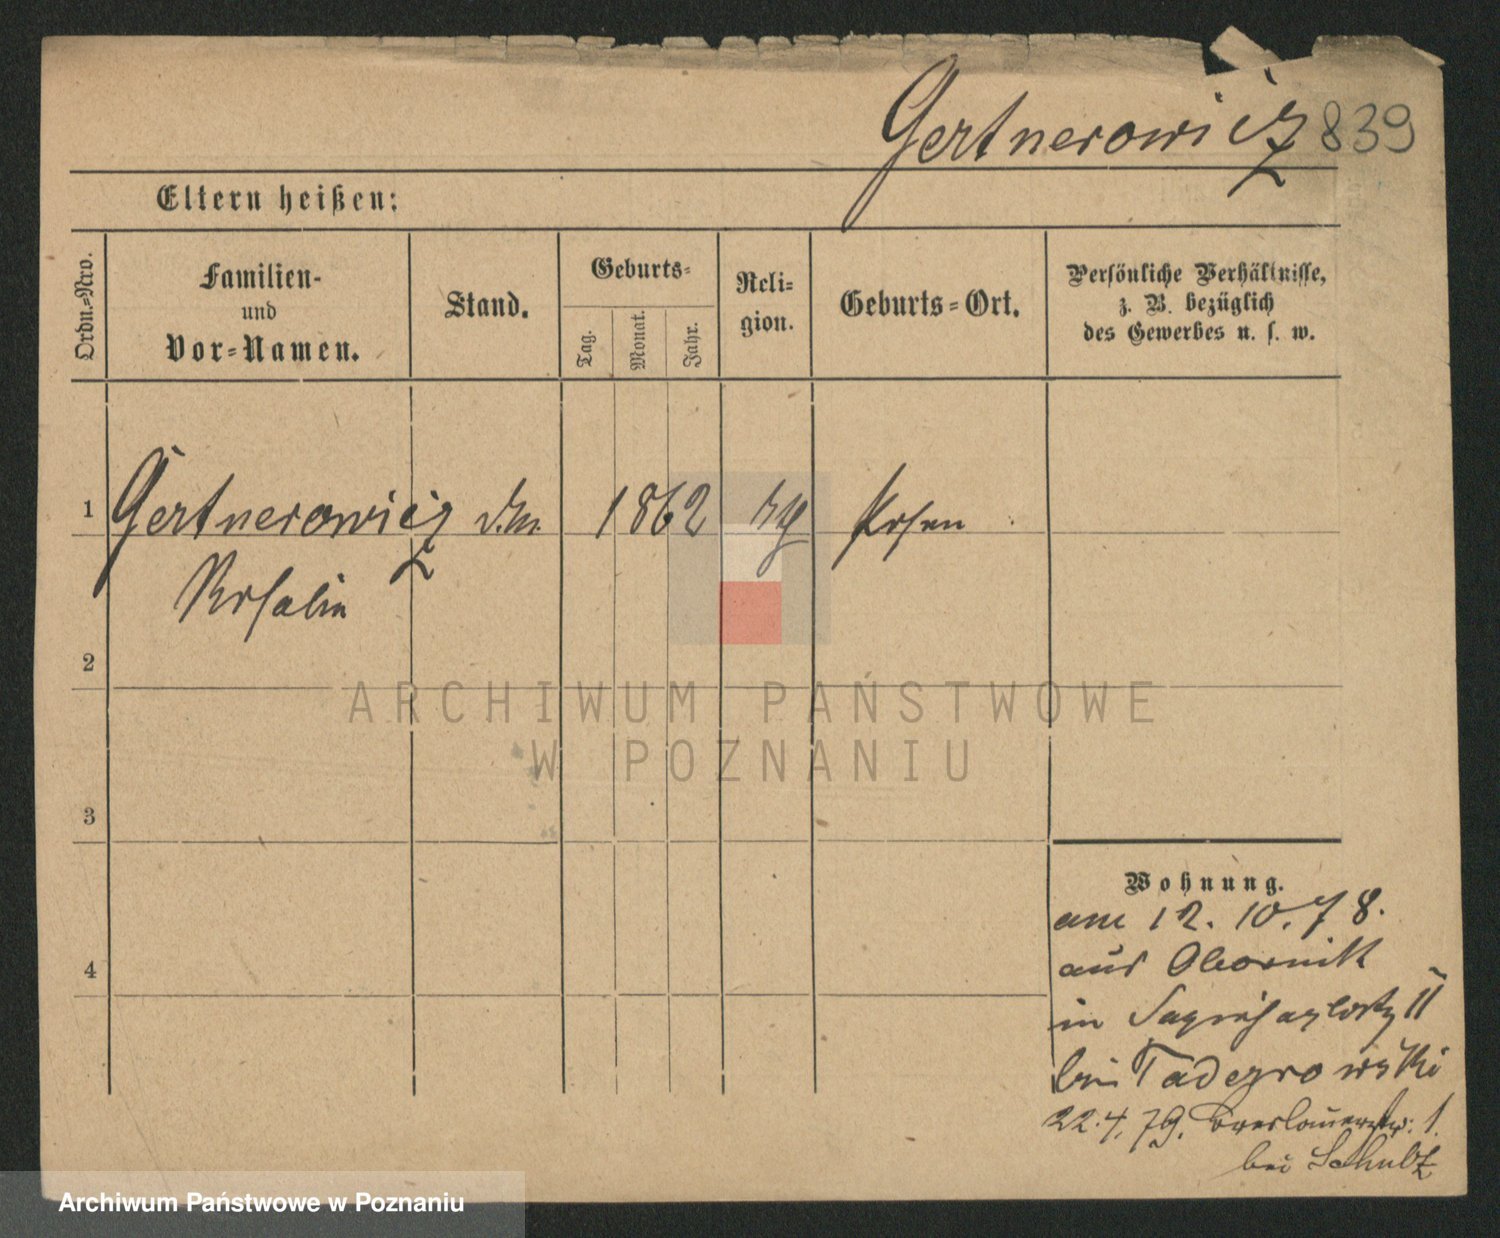 Gertnerowicz 839
Eltern heißen:
Ordn.=Nro.
Familien-
und
Vor=Namen.
Stand.
Geburts=
Tag.
Monat.
Jahr.
Reli=
gion.
Geburts=Ort.
Persönliche Verhältnisse,
z. B. bezüglich
des Gewerbes u. s. w.
1 Gertnerowicz 1862 Posen
Rosalie
2
ARCHIWUM PAŃSTWOWE
W POZNANIU
3
Wohnung.
am 12. 10. 78.
aus Obornik
in Sapiehaplatz 11
4
bei
22.4.79. Breslauerstr: 1.
bei Schulz
Archiwum Państwowe w Poznaniu